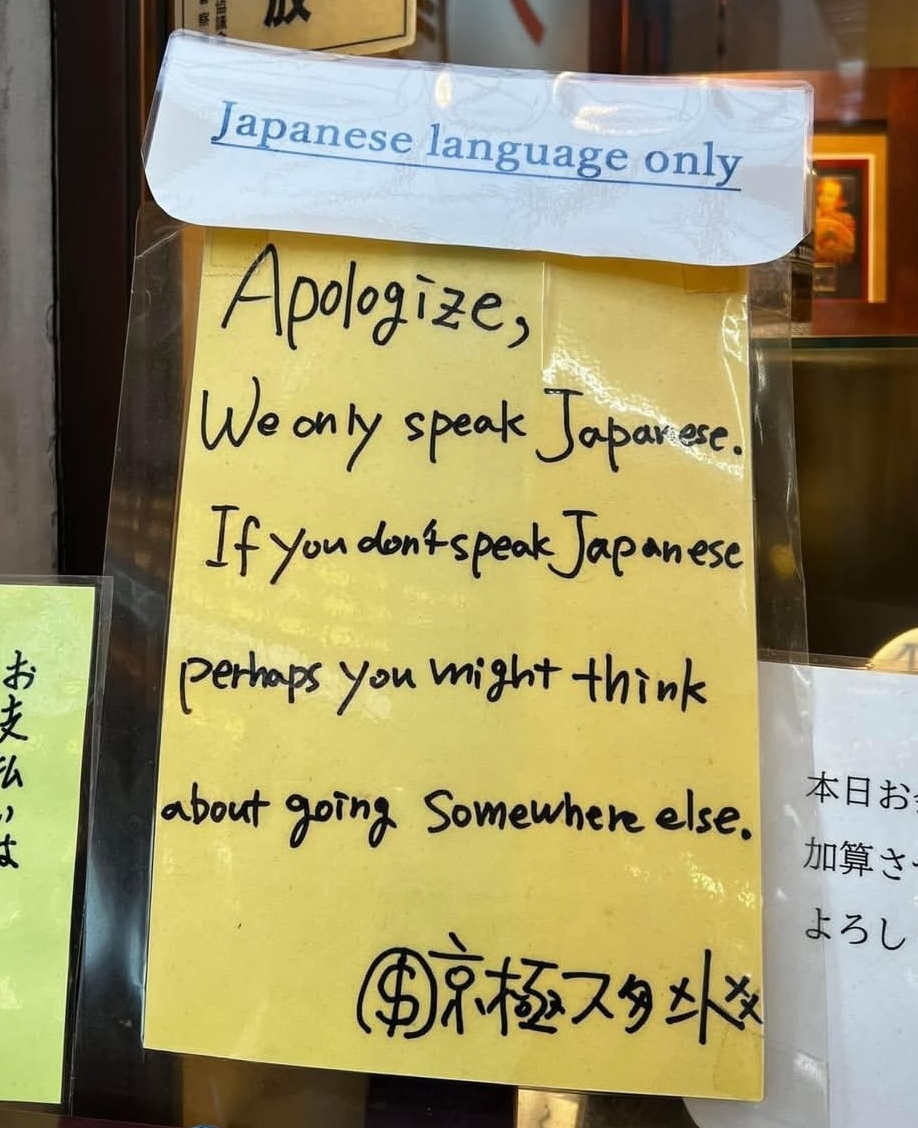 Japanese language only
Apologize,
We only speak Japanese.
If you don't speak Japanese
perhaps you might think
about going somewhere else.
($)京極スタンド
お支払いは
本日お
加算さ
よろし